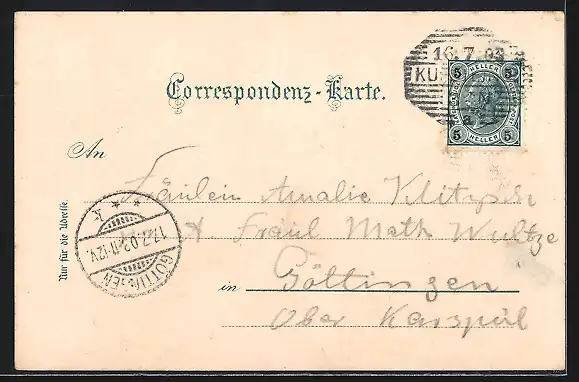 16.7.03
KU
5 HELLER 5
5 HELLER 5
Correspondenz-Karte.
An
Fräulein Amalie Klitzsch
Fräul Math
Nur für die Adresse.
17.7.03.11-12V
GÖTTINGEN
in Göttingen
Ober Karspüle